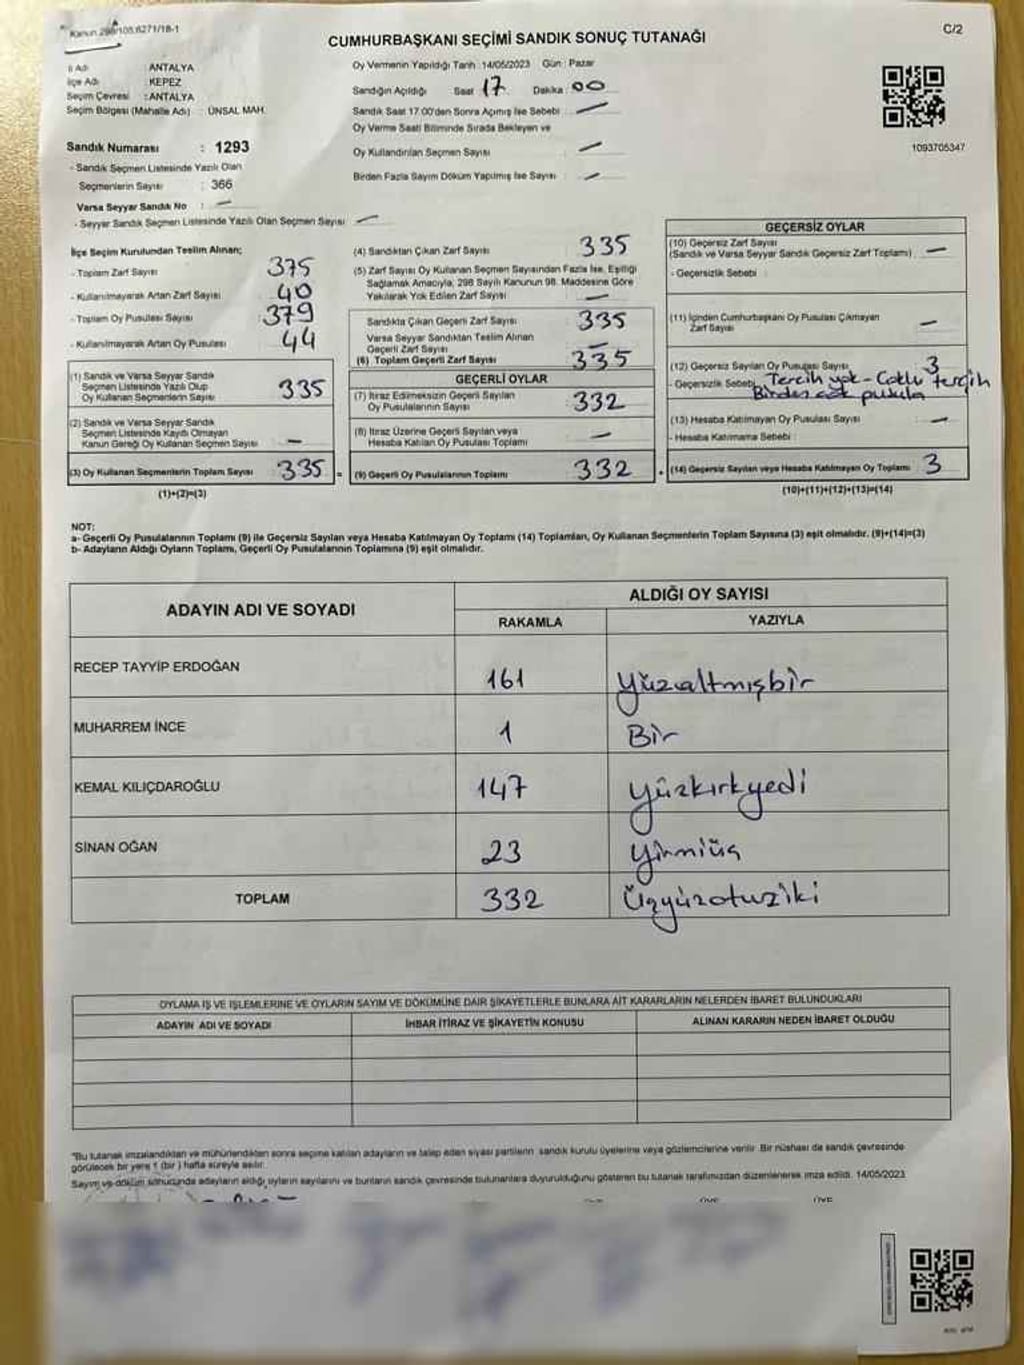 Kanun 298/105;6271/18-1
C/2
CUMHURBAŞKANI SEÇİMİ SANDIK SONUÇ TUTANAĞI
İl Adı : ANTALYA
İlçe Adı : KEPEZ
Seçim Çevresi : ANTALYA
Seçim Bölgesi (Mahalle Adı) : ÜNSAL MAH.
Sandık Numarası : 1293
- Sandık Seçmen Listesinde Yazılı Olan
Seçmenlerin Sayısı : 366
Varsa Seyyar Sandık No : —
- Seyyar Sandık Seçmen Listesinde Yazılı Olan Seçmen Sayısı —
Oy Vermenin Yapıldığı Tarih :14/05/2023 Gün : Pazar
Sandığın Açıldığı Saat 17 Dakika 00
Sandık Saat 17.00'den Sonra Açılmış İse Sebebi : —
Oy Verme Saati Bitiminde Sırada Bekleyen ve
Oy Kullandırılan Seçmen Sayısı —
Birden Fazla Sayım Döküm Yapılmış İse Sayısı : —
1093705347
İlçe Seçim Kurulundan Teslim Alınan;
- Toplam Zarf Sayısı 375
- Kullanılmayarak Artan Zarf Sayısı 40
- Toplam Oy Pusulası Sayısı 379
- Kullanılmayarak Artan Oy Pusulası 44
(1) Sandık ve Varsa Seyyar Sandık
Seçmen Listesinde Yazılı Olup
Oy Kullanan Seçmenlerin Sayısı 335
(2) Sandık ve Varsa Seyyar Sandık
Seçmen Listesinde Kaydı Olmayan
Kanun Gereği Oy Kullanan Seçmen Sayısı —
(3) Oy Kullanan Seçmenlerin Toplam Sayısı 335 =
(1)+(2)=(3)
(4) Sandıktan Çıkan Zarf Sayısı 335
(5) Zarf Sayısı Oy Kullanan Seçmen Sayısından Fazla İse, Eşitliği
Sağlamak Amacıyla, 298 Sayılı Kanunun 98. Maddesine Göre
Yakılarak Yok Edilen Zarf Sayısı —
Sandıkta Çıkan Geçerli Zarf Sayısı 335
Varsa Seyyar Sandıktan Teslim Alınan
Geçerli Zarf Sayısı —
(6) Toplam Geçerli Zarf Sayısı 335
GEÇERLİ OYLAR
(7) İtiraz Edilmeksizin Geçerli Sayılan
Oy Pusulalarının Sayısı 332
(8) İtiraz Üzerine Geçerli Sayılan veya
Hesaba Katılan Oy Pusulası Toplamı —
(9) Geçerli Oy Pusulalarının Toplamı 332 +
GEÇERSİZ OYLAR
(10) Geçersiz Zarf Sayısı
(Sandık ve Varsa Seyyar Sandık Geçersiz Zarf Toplamı) —
- Geçersizlik Sebebi :
(11) İçinden Cumhurbaşkanı Oy Pusulası Çıkmayan
Zarf Sayısı —
(12) Geçersiz Sayılan Oy Pusulası Sayısı 3
- Geçersizlik Sebebi Tercih yok - Çoklu tercih
Birden çok pusula
(13) Hesaba Katılmayan Oy Pusulası Sayısı —
- Hesaba Katılmama Sebebi :
(14) Geçersiz Sayılan veya Hesaba Katılmayan Oy Toplamı 3
(10)+(11)+(12)+(13)=(14)
NOT:
a- Geçerli Oy Pusulalarının Toplamı (9) ile Geçersiz Sayılan veya Hesaba Katılmayan Oy Toplamı (14) Toplamları, Oy Kullanan Seçmenlerin Toplam Sayısına (3) eşit olmalıdır. (9)+(14)=(3)
b- Adayların Aldığı Oyların Toplamı, Geçerli Oy Pusulalarının Toplamına (9) eşit olmalıdır.
ADAYIN ADI VE SOYADI
ALDIĞI OY SAYISI
RAKAMLA YAZIYLA
RECEP TAYYİP ERDOĞAN 161 Yüzaltmışbir
MUHARREM İNCE 1 Bir
KEMAL KILIÇDAROĞLU 147 Yüzkırkyedi
SİNAN OĞAN 23 Yirmiüç
TOPLAM 332 Üçyüzotuziki
OYLAMA İŞ VE İŞLEMLERİNE VE OYLARIN SAYIM VE DÖKÜMÜNE DAİR ŞİKAYETLERLE BUNLARA AİT KARARLARIN NELERDEN İBARET BULUNDUKLARI
ADAYIN ADI VE SOYADI İHBAR İTİRAZ VE ŞİKAYETİN KONUSU ALINAN KARARIN NEDEN İBARET OLDUĞU
"Bu tutanak imzalandıktan ve mühürlendikten sonra seçime katılan adayların ve talep eden siyasi partilerin sandık kurulu üyelerine veya gözlemcilerine verilir. Bir nüshası da sandık çevresinde
görülecek bir yere 1 (bir) hafta süreyle asılır.
Sayım ve döküm sonucunda adayların aldığı oyların sayılarını ve bunların sandık çevresinde bulunanlara duyurulduğunu gösteren bu tutanak tarafımızdan düzenlenerek imza edildi. 14/05/2023